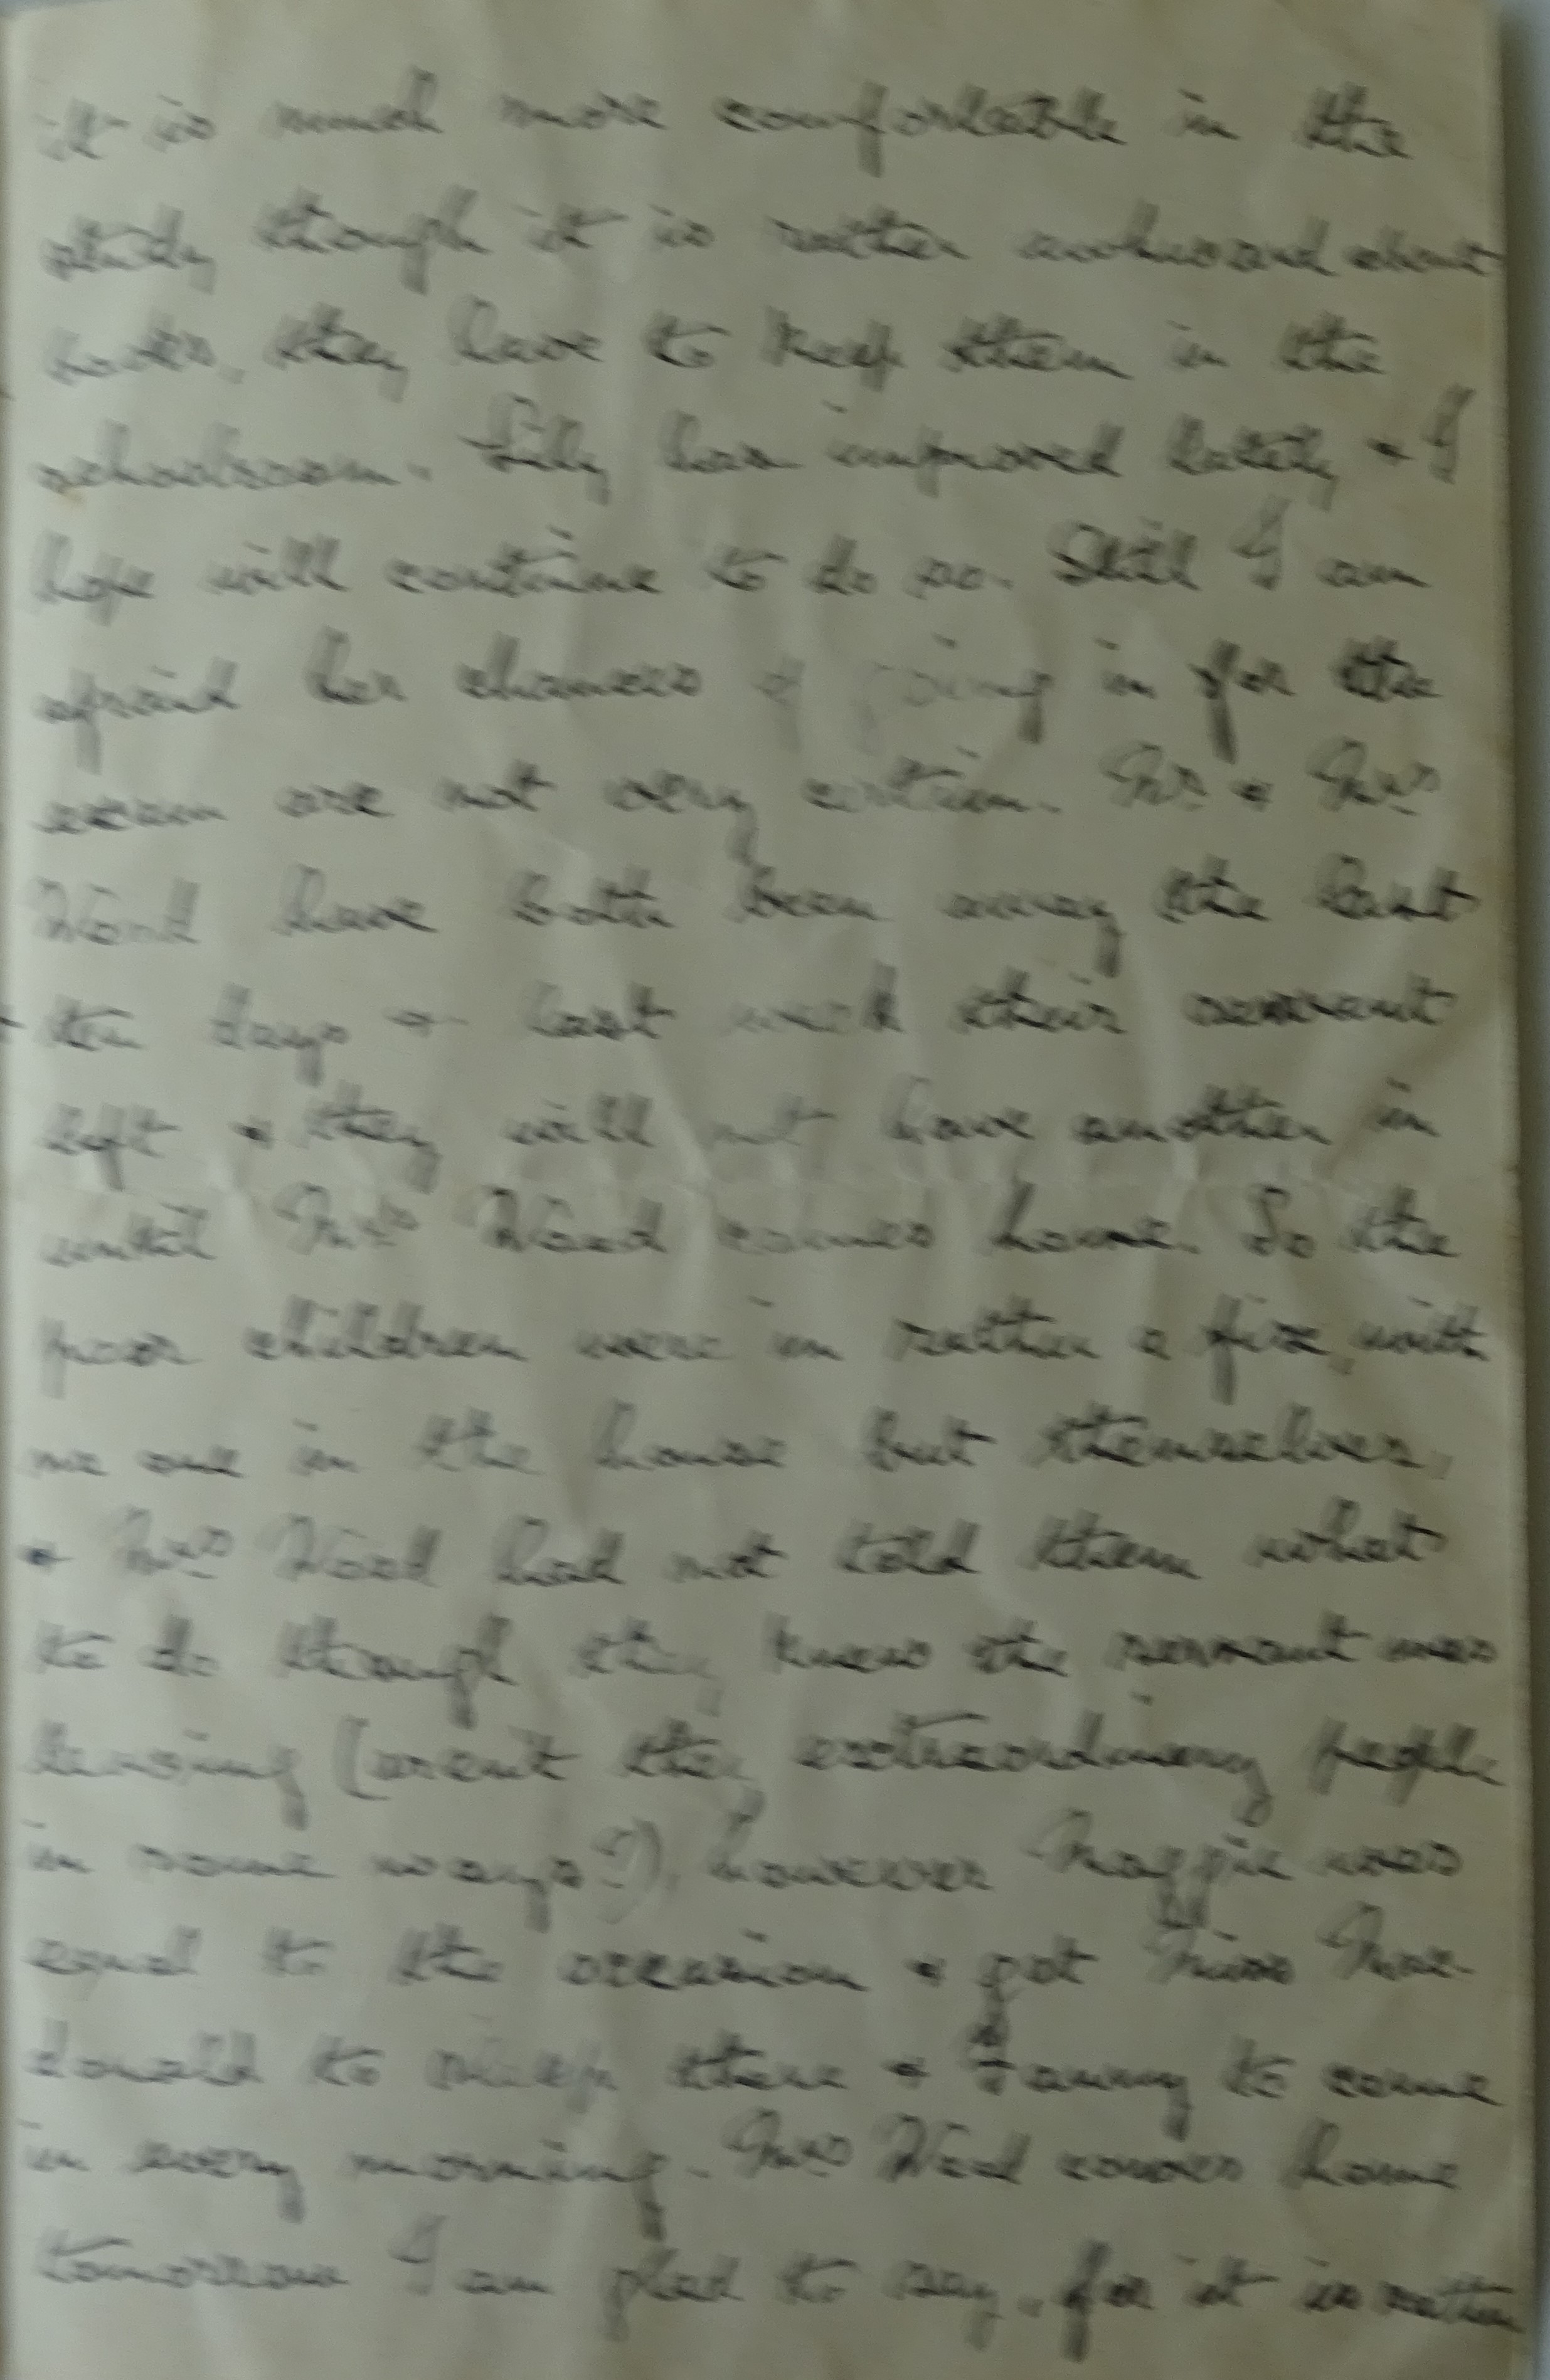 it is much more comfortable in the
study though it is rather awkward about
books, they have to keep them in the
schoolroom. Lily has improved lately & I
hope will continue to do so. Still I am
afraid her chances of going in for the
exam are not very certain. Mr & Mrs
Wood have both been away the last
ten days & last week their servant
left & they will not have another in
until Mrs Wood comes home. So the
poor children were in rather a fix, with
no one in the house but themselves,
& Mrs Wood had not told them what
to do though they knew the servant was
leaving (aren't they extraordinary people
in some ways?), however Maggie was
equal to the occasion & got Miss Mac-
donald to sleep there & Fanny to come
in every morning. Mrs Wood comes home
tomorrow I am glad to say, for it is rather